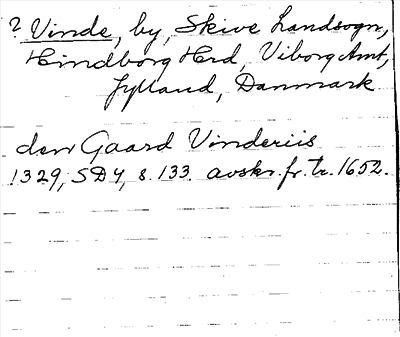 ? Vinde, by, Skive Landsogn,
Hindborg Hrd, Viborg Amt,
Jylland, Danmark
den Gaard Vinderiis
1329, SD 4, s. 133. avskr. fr. tr. 1652.